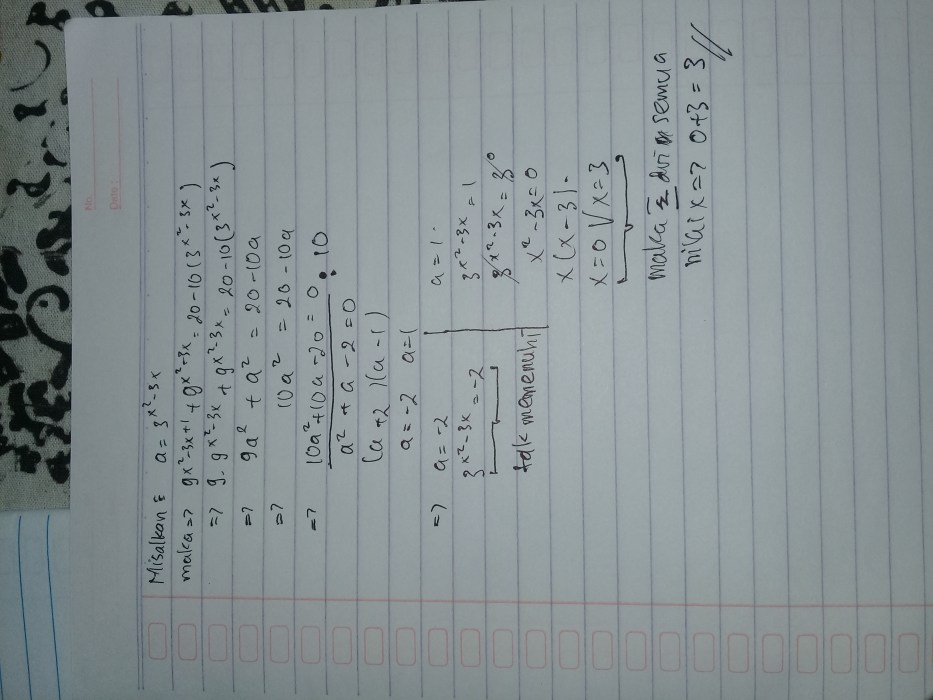 No.
Date.
Misalkan : a = 3^(x²-3x)
maka => 9^(x²-3x+1) + 9^(x²-3x) = 20 - 10 (3^(x²-3x))
=> 9. 9^(x²-3x) + 9^(x²-3x) = 20 - 10 (3^(x²-3x))
=> 9a² + a² = 20 - 10a
=> 10a² = 20 - 10a
=> 10a² + 10a - 20 = 0 : 10
a² + a - 2 = 0
(a + 2)(a - 1)
a = -2 a = 1
=> a = -2
3^(x²-3x) = -2
tdk memenuhi
a = 1.
3^(x²-3x) = 1
3^(x²-3x) = 3⁰
x² - 3x = 0
x(x - 3).
x = 0 V x = 3
maka Σ dri semua
nilai x => 0+3 = 3 //